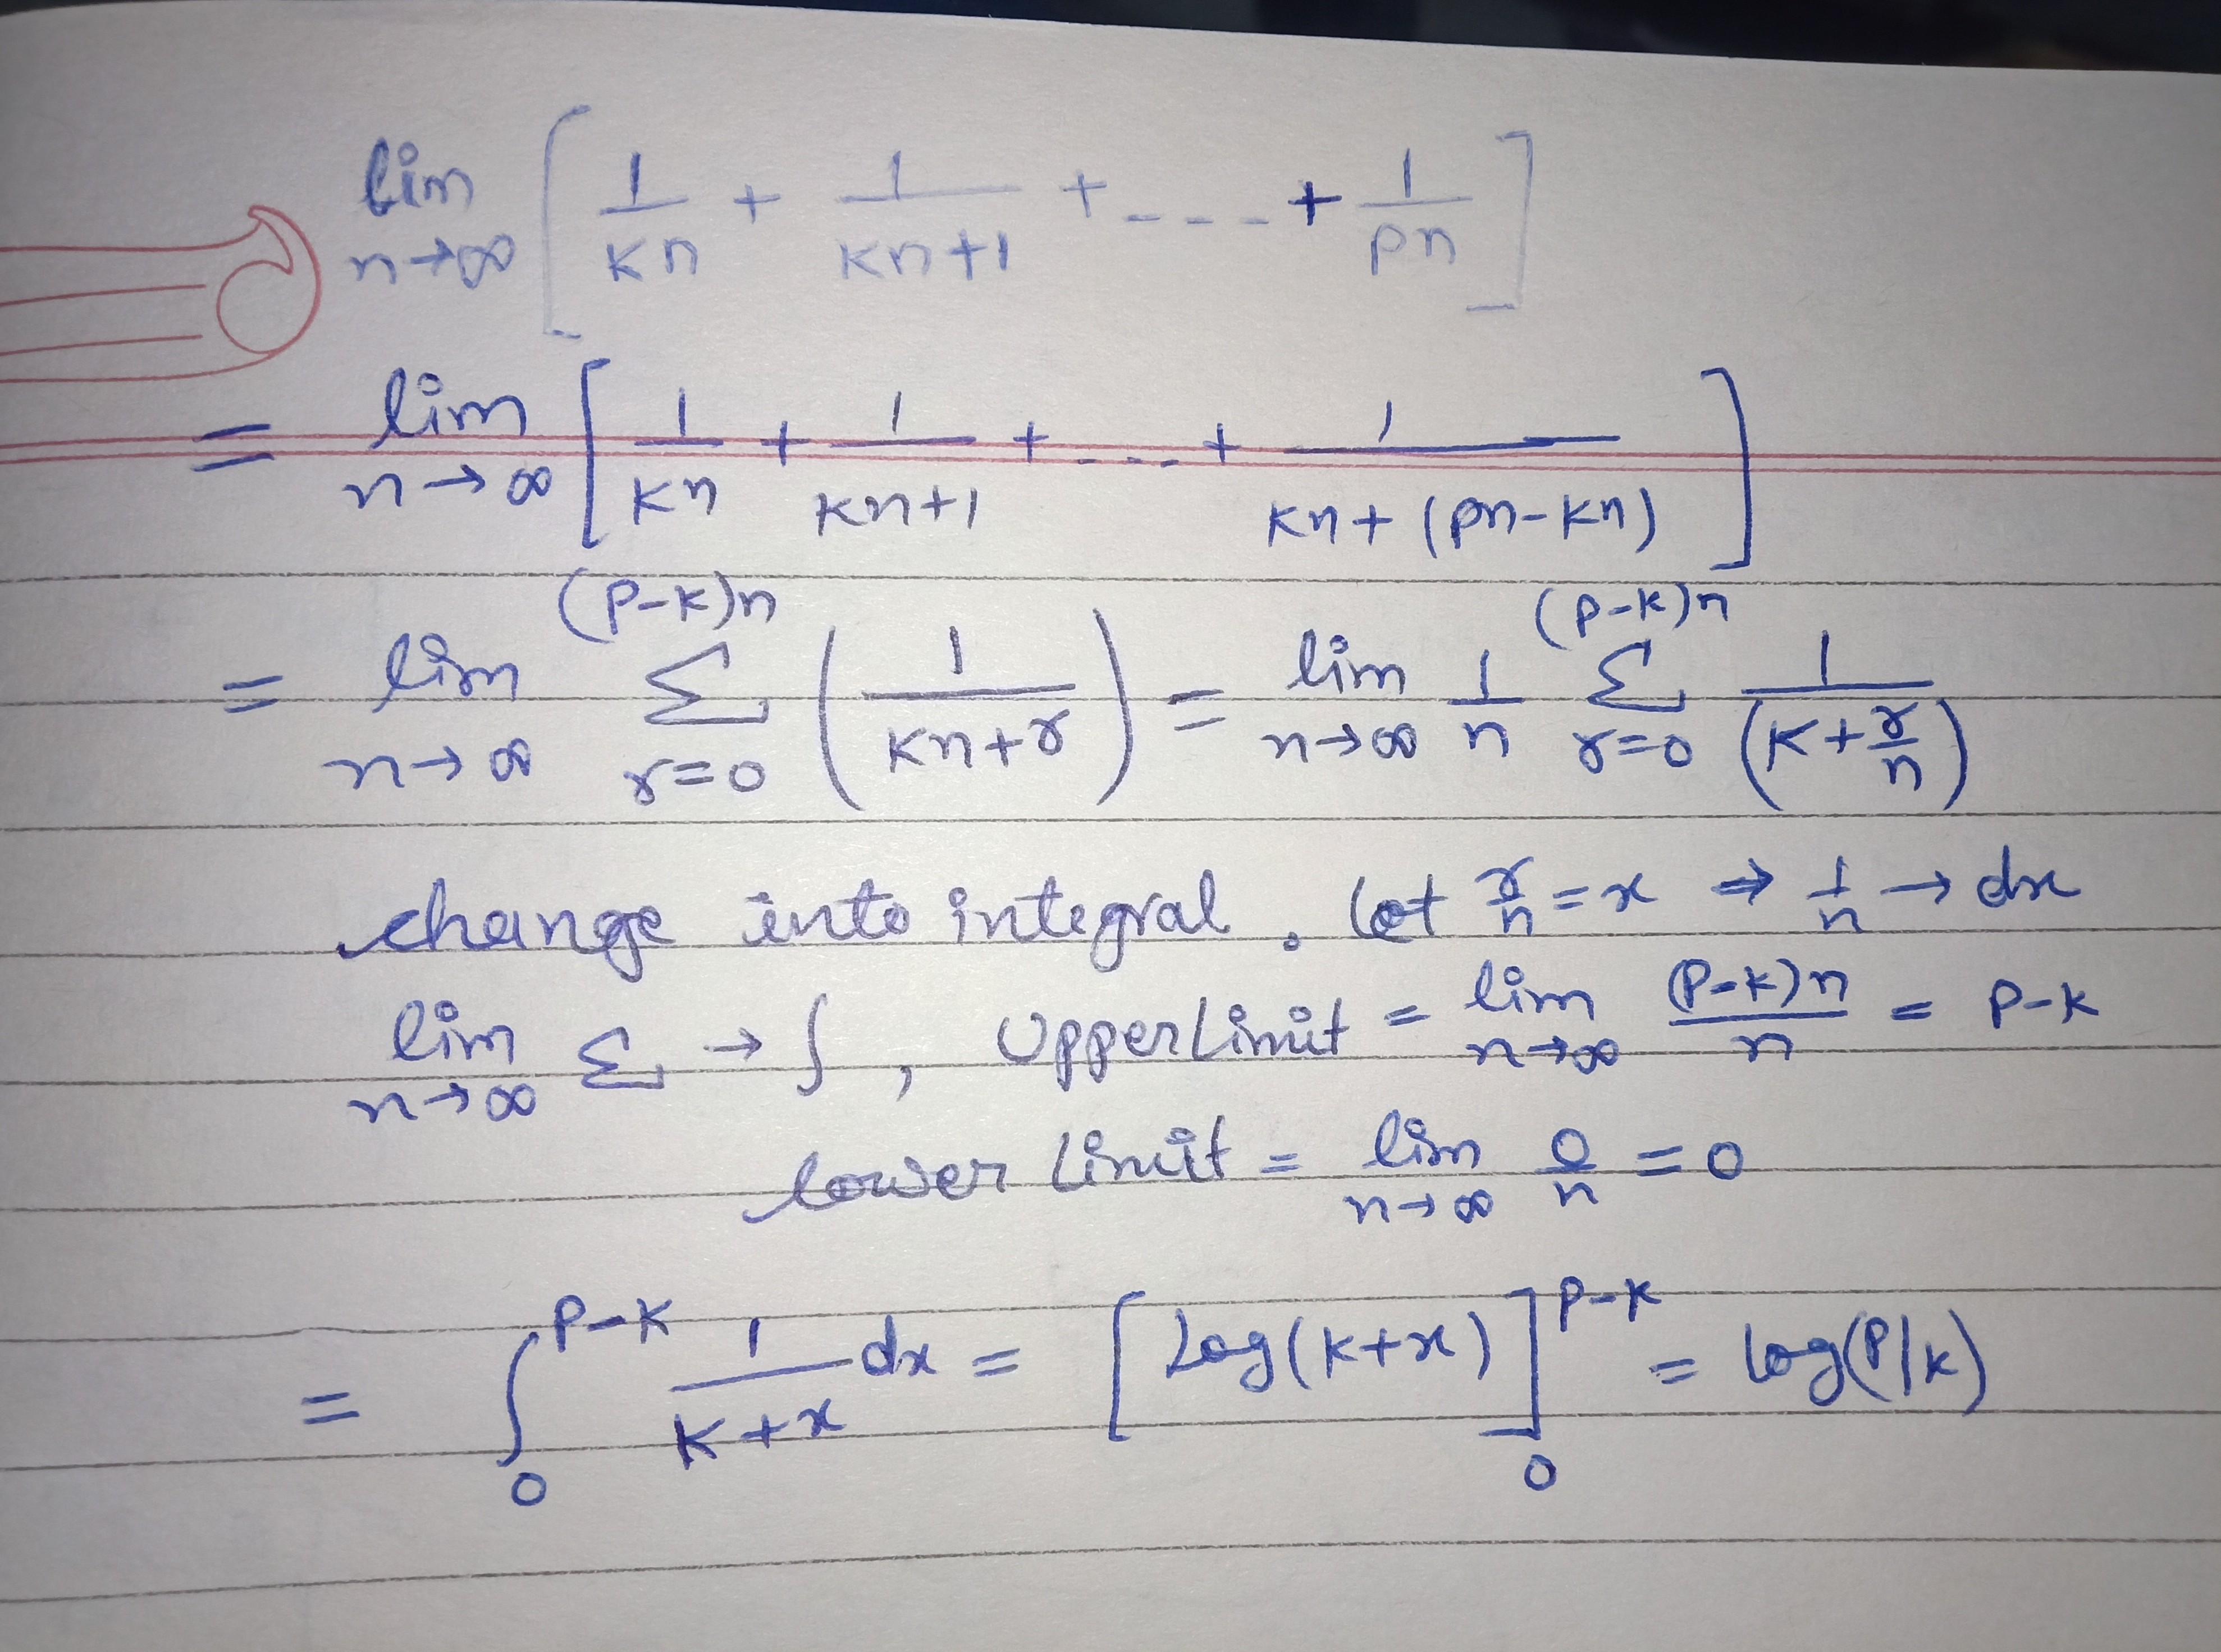 lim n→∞ [ 1/kn + 1/(kn+1) + ---- + 1/pn ]
= lim n→∞ [ 1/kn + 1/(kn+1) + ---- + 1/(kn+(pn-kn)) ]
= lim n→∞ Σ_{r=0}^{(p-k)n} ( 1/(kn+r) ) = lim n→∞ 1/n Σ_{r=0}^{(p-k)n} 1/(k+r/n)
change into integral. let r/n = x ⇒ 1/n → dx
lim n→∞ Σ → ∫ , upper limit = lim n→∞ (p-k)n/n = p-k
lower limit = lim n→∞ 0/n = 0
= ∫_0^{p-k} 1/(k+x) dx = [ Log(k+x) ]_0^{p-k} = log(p/k)